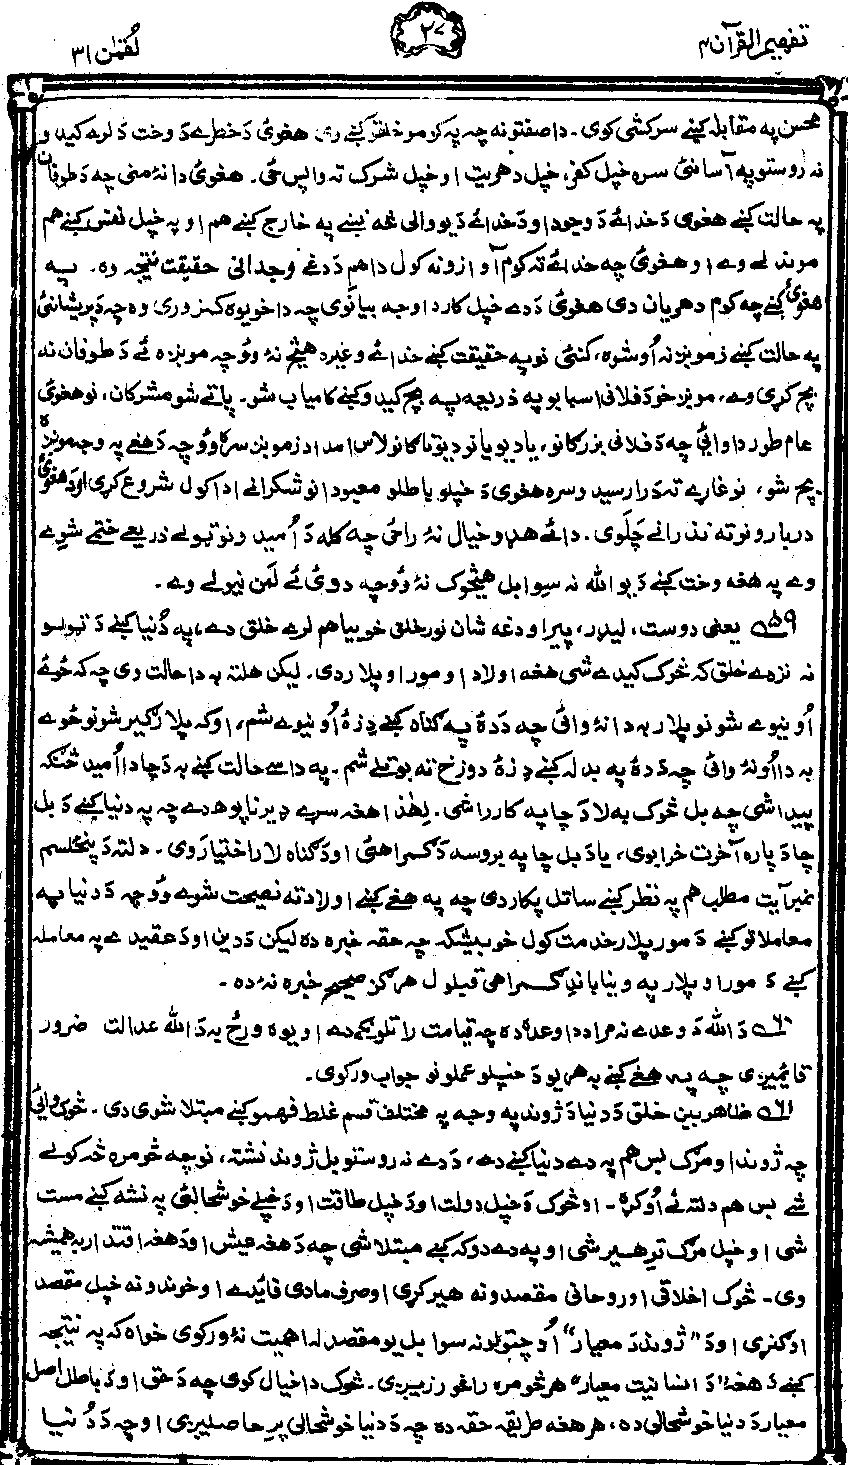 تفهيم القرآن ۴
۲۷
لُقمٰن ۳۱
محسن په مقابله کښے سرکشی کوی ۔ دا صفتونه چه په کومو خلقو کښے وی هغویٔ دَ خطرے دَ وخت دَ لرے کیدو
نه روستو په آسانیٔ سره خپل کفر، خپل دهریت او خپل شرک ته واپس حٔی ۔ هغویٔ دا نهٔ منی چه دَ طوفان
په حالت کښے هغوی دَ خدائے دَ وجود او دَ خدائے دَ یو والی څه نښے په خارج کښے هم او په خپل نفس کښے هم
موندلے وے او هغویٔ چه خدائے ته کوم آوازونه کول دا هم دَ دغے وجدانی حقیقت نتیجه وه ۔ په
هغویٔ کښے چه کوم دهریان دی هغویٔ دَ دے خپل کار دا وجه بیانوی چه دا خو یوه کمزوری وه چه دَ پریشانیٔ
په حالت کښے زمونږ نه اُوشوه، کنی نو په حقیقت کښے خدائے وغیره هیڅ نهٔ وو چه مونږه ئے دَ طوفان نه
بچ کړی وے، مونږ خو دَ فلانی اسبابو په ذریعه په بچ کیدو کښے کامیاب شو ۔ پاتے شو مشرکان، نو هغوی
عام طور دا وائی چه دَ فلانی بزرګانو، یا دیویانو دیوتاګانو لاس امداد زمونږ سره وو چه دَ هغے په وجه مونږه
بچ شو، نو غاړے ته دَ رارسیدو سره هغوی دَ خپلو باطلو معبودانو شکرانے ادا کول شروع کړی او دَ هغویٔ
دربارونو ته نذرانے چَلَوی ۔ دا ئے هډو خیال نهٔ راحٔی چه کله دَ اُمید ونو ټولے ذریعے ختمے شوے
وے په هغه وخت کښے دَ یو الله نه سوا بل هیڅوک نهٔ وو چه دویٔ ئے لَمن نیولے وے ۔
۵۹ یعنی دوست، لیډر، پیر او دغه شان نور خلق خو بیا هم لرے خلق دے، په دُنیا کښے دَ ټولو
نه نزدے خلق که څوک کیدے شی هغه اولاد او مور او پلار دی ۔ لیکن هلته به دا حالت وی چه که څوئے
اُونیوے شو نو پلار به دا نهٔ وائی چه دَ دهٔ په ګناه کښے دِ زهٔ اُونیوے شم، او که پلار ګیر شو نو څوئے
به دا اُونهٔ وائی چه دَ دهٔ په بدله کښے دِ زهٔ دوزخ ته بوتلے شم ۔ په داسے حالت کښے به دَ چا دا اُمید څنګه
پیدا شی چه بل څوک به لا دَ چا په کار راشی ۔ لِهٰذا هغه سړے ډیر ناپوه دے چه په دنیا کښے دَ بل
چا دَ پاره آخرت خرابوی، یا دَ بل چا په بروسه دَ ګمراهیٔ او دَ ګناه لار اختیاروی ۔ دلته دَ پنځلسم
نمبر آیت مطلب هم په نظر کښے ساتل پکار دی چه په هغے کښے اولاد ته نصیحت شوے وو چه دَ دنیا په
معاملاتو کښے دَ مور پلار خدمت کول خو بیشکه چه حقه خبره ده لیکن دَ دین او دَ عقیدے په معامله
کښے دَ مور او پلار په وینا باندِ ګمراهی قبلول هرګز صحیح خبره نهٔ ده ۔
۶۰ دَ الله دَ وعدے نه مراد دا وعده ده چه قیامت راتلونکے دے او یوه ورځ به دَ الله عدالت ضرور
قائمیږی چه په هغے کښے به هر یو دَ خپلو عملونو جواب ورکوی ۔
۶۱ ظاهربین خلق دَ دنیا دَ ژوند په وجه په مختلف قسم غلط فهمو کښے مبتلا شوی دی ۔ څوک وائی
چه ژوند او مرګ بس هم په دے دنیا کښے دے، دَ دے نه روستو بل ژوند نشته، نو چه څومره څه کولے
شے بس هم دلته ئے اُوکړه ۔ او څوک دَ خپل دولت او دَ خپل طاقت او دَ خپلے خوشحالیٔ په نشه کښے مست
شی او خپل مرګ ترِ هیر شی او په دے دوکه کښے مبتلا شی چه دَ هغه عیش او دَ هغه اقتدار به همیشه
وی ۔ څوک اخلاقی او روحانی مقصدونه هیر کړی او صرف مادی فائدے او خوندونه خپل مقصد
اوګنړی او دَ "ژوند دَ معیار" اُوچتولو نه سوا بل یو مقصد له اهمیت نهٔ ورکوی خواه که په نتیجه
کښے دَ هغه "دَ انسانیت معیار" هر څومره راغورزیږی ۔ څوک دا خیال کوی چه دَ حق او دَ باطل اصل
معیار دَ دنیا خوشحالی ده، هر هغه طریقه حقه ده چه دَ دنیا خوشحالی پرِ حاصلیږی او چه دَ دُنیا